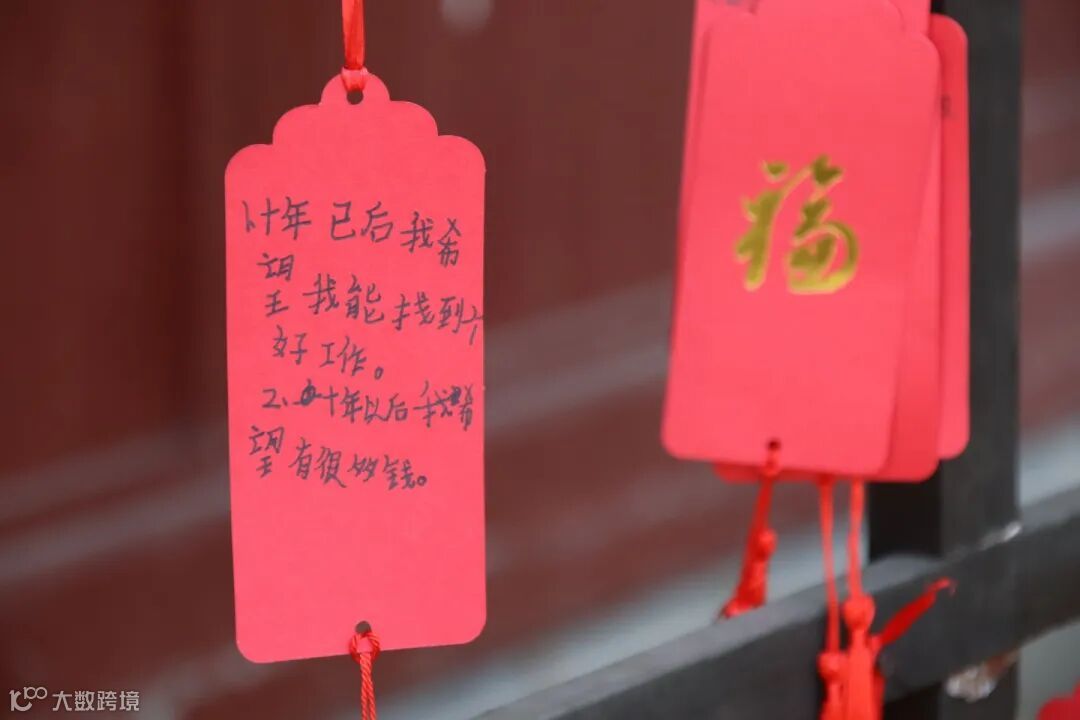 1.十年已后我希
望我能找到个
好工作。
2.十年以后我希
望有很多钱。
福
大数跨境